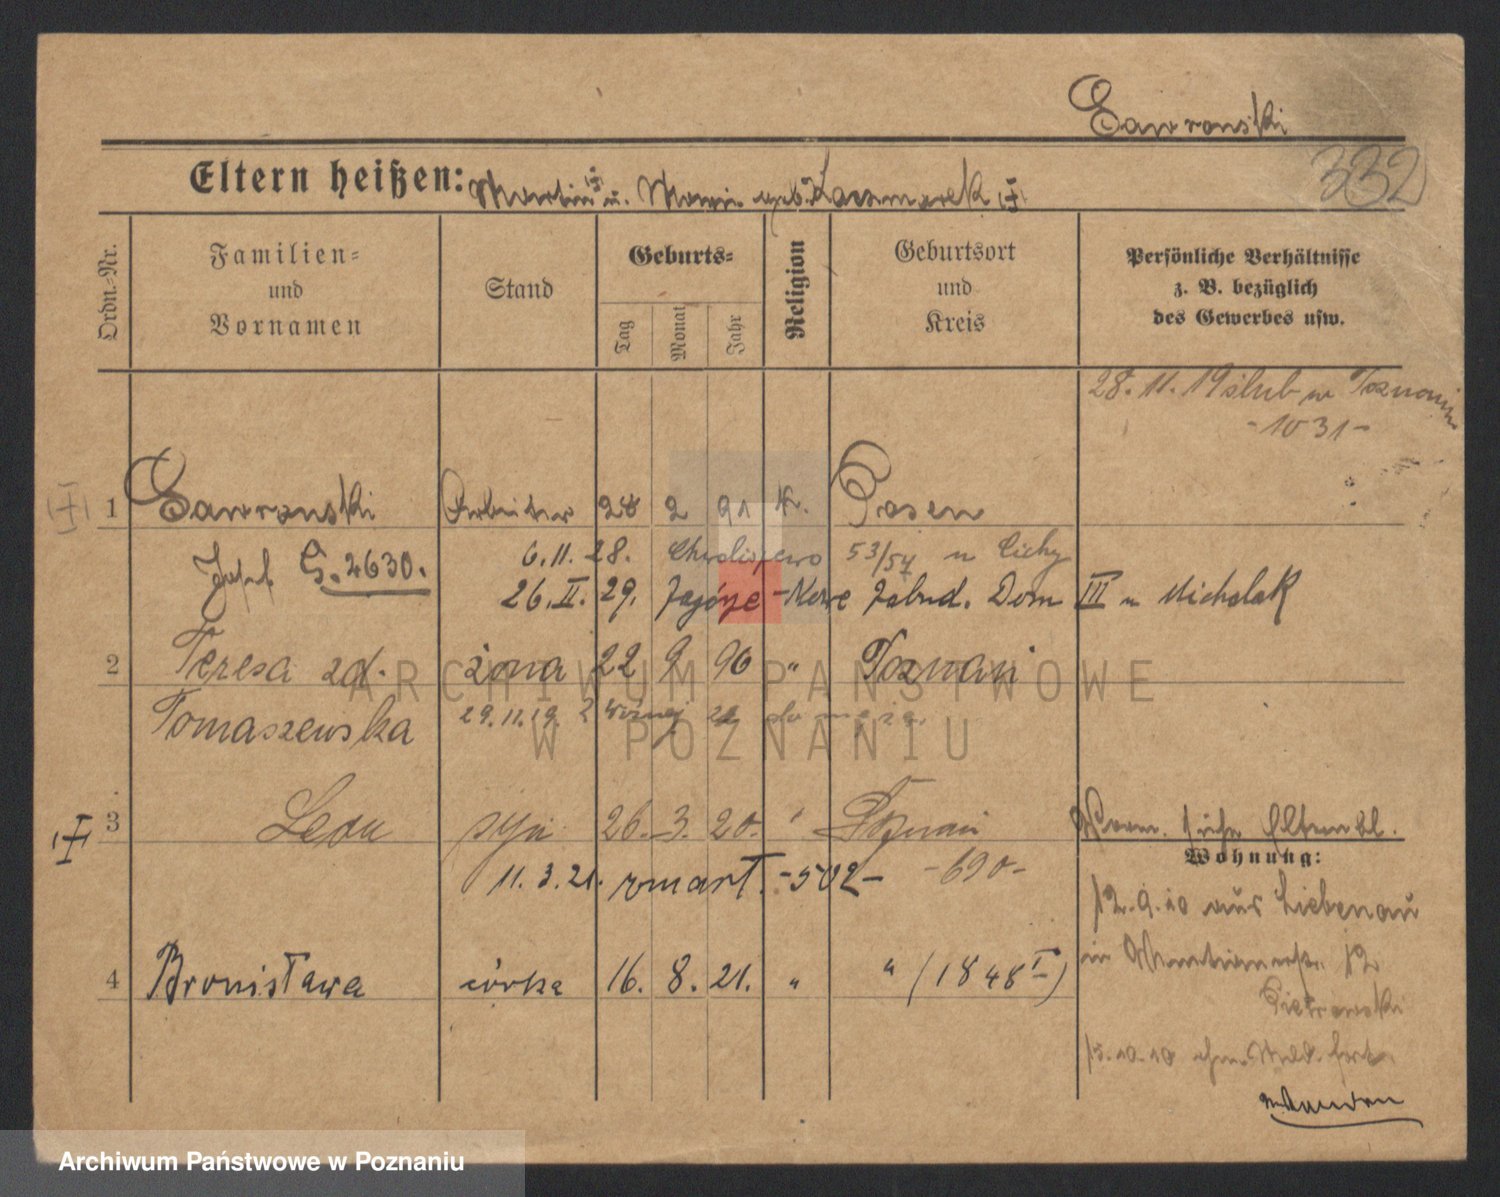 Gawronski
332
Eltern heißen: Martin u. Marie geb. Kaczmarek
Ordn.-Nr.
Familien- und Vornamen
Stand
Geburts-
Tag
Monat
Jahr
Religion
Geburtsort und Kreis
Persönliche Verhältnisse
z. B. bezüglich
des Gewerbes usw.
28.11.19 ślub w Poznaniu
-1031-
1 Gawronski Arbeiter 28 2 91 K. Posen
Josef G. 2630. 6.11.28. Chwaliszewo 53/54 u Cichy
26.II.29. Zagórze-Nowe Zabud. Dom III u Michalak
2 Teresa zd. żona 22 9 96 " Poznań
Tomaszewska 29.11.19. z 22 do męża
3 Leon syn 26. 3. 20. " Poznań
11.3.21. zmarł. -502- -690-
Wohnung:
12.9.10 aus Liebenau
in 12
Pietrowski
4 Bronisława córka 16. 8. 21. " " (1848 I)
15.10.10
ARCHIWUM PAŃSTWOWE
W POZNANIU
Archiwum Państwowe w Poznaniu